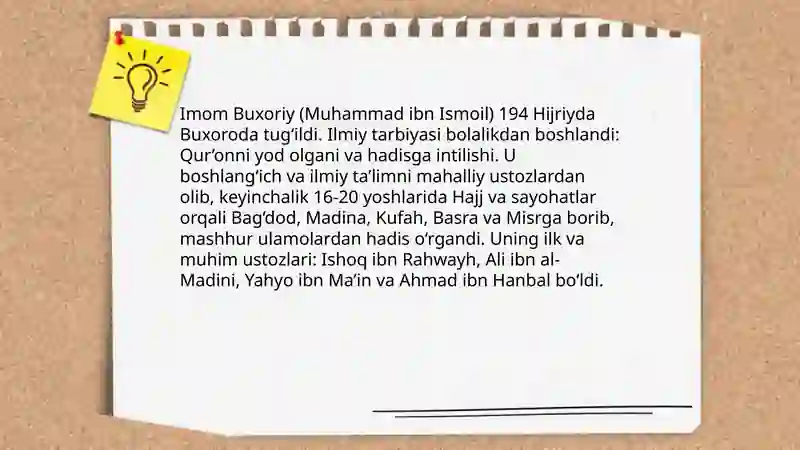 Imom Buxoriy (Muhammad ibn Ismoil) 194 Hijriyda
Buxoroda tug‘ildi. Ilmiy tarbiyasi bolalikdan boshlandi:
Qur’onni yod olgani va hadisga intilishi. U
boshlang‘ich va ilmiy ta’limni mahalliy ustozlardan
olib, keyinchalik 16-20 yoshlarida Hajj va sayohatlar
orqali Bag‘dod, Madina, Kufah, Basra va Misrga borib,
mashhur ulamolardan hadis o‘rgandi. Uning ilk va
muhim ustozlari: Ishoq ibn Rahwayh, Ali ibn al-
Madini, Yahyo ibn Ma’in va Ahmad ibn Hanbal bo‘ldi.